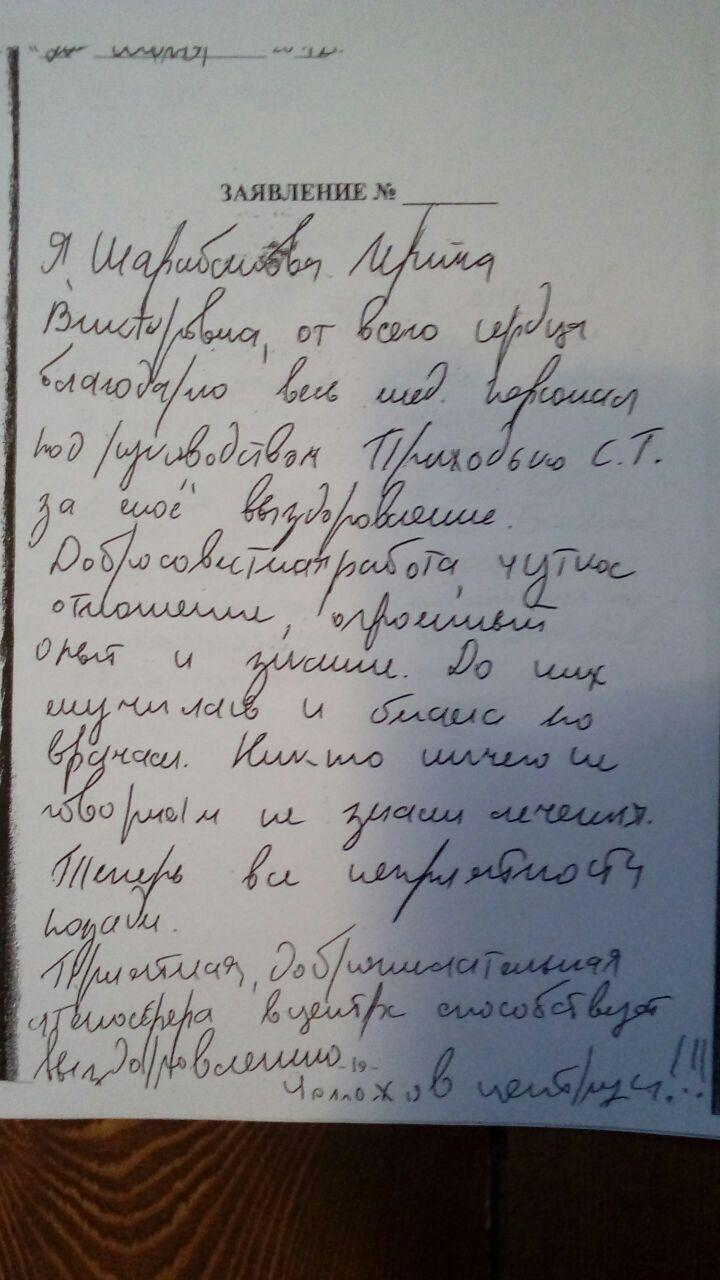 ЗАЯВЛЕНИЕ № ______
Я Ирина
Викторовна, от всего сердца
благодарю весь мед. персонал
под руководством Приходько С.Т.
за моё выздоровление.
Добросовестная работа, чуткое
отношение, огромный
опыт и знание. До них
мучилась и бегала по
врачам. Никто ничего не
говорил и не знали лечения.
Теперь все неприятности
позади.
Приятная, доброжелательная
атмосфера в центре способствует
выздоровлению
-19-
центру!!!